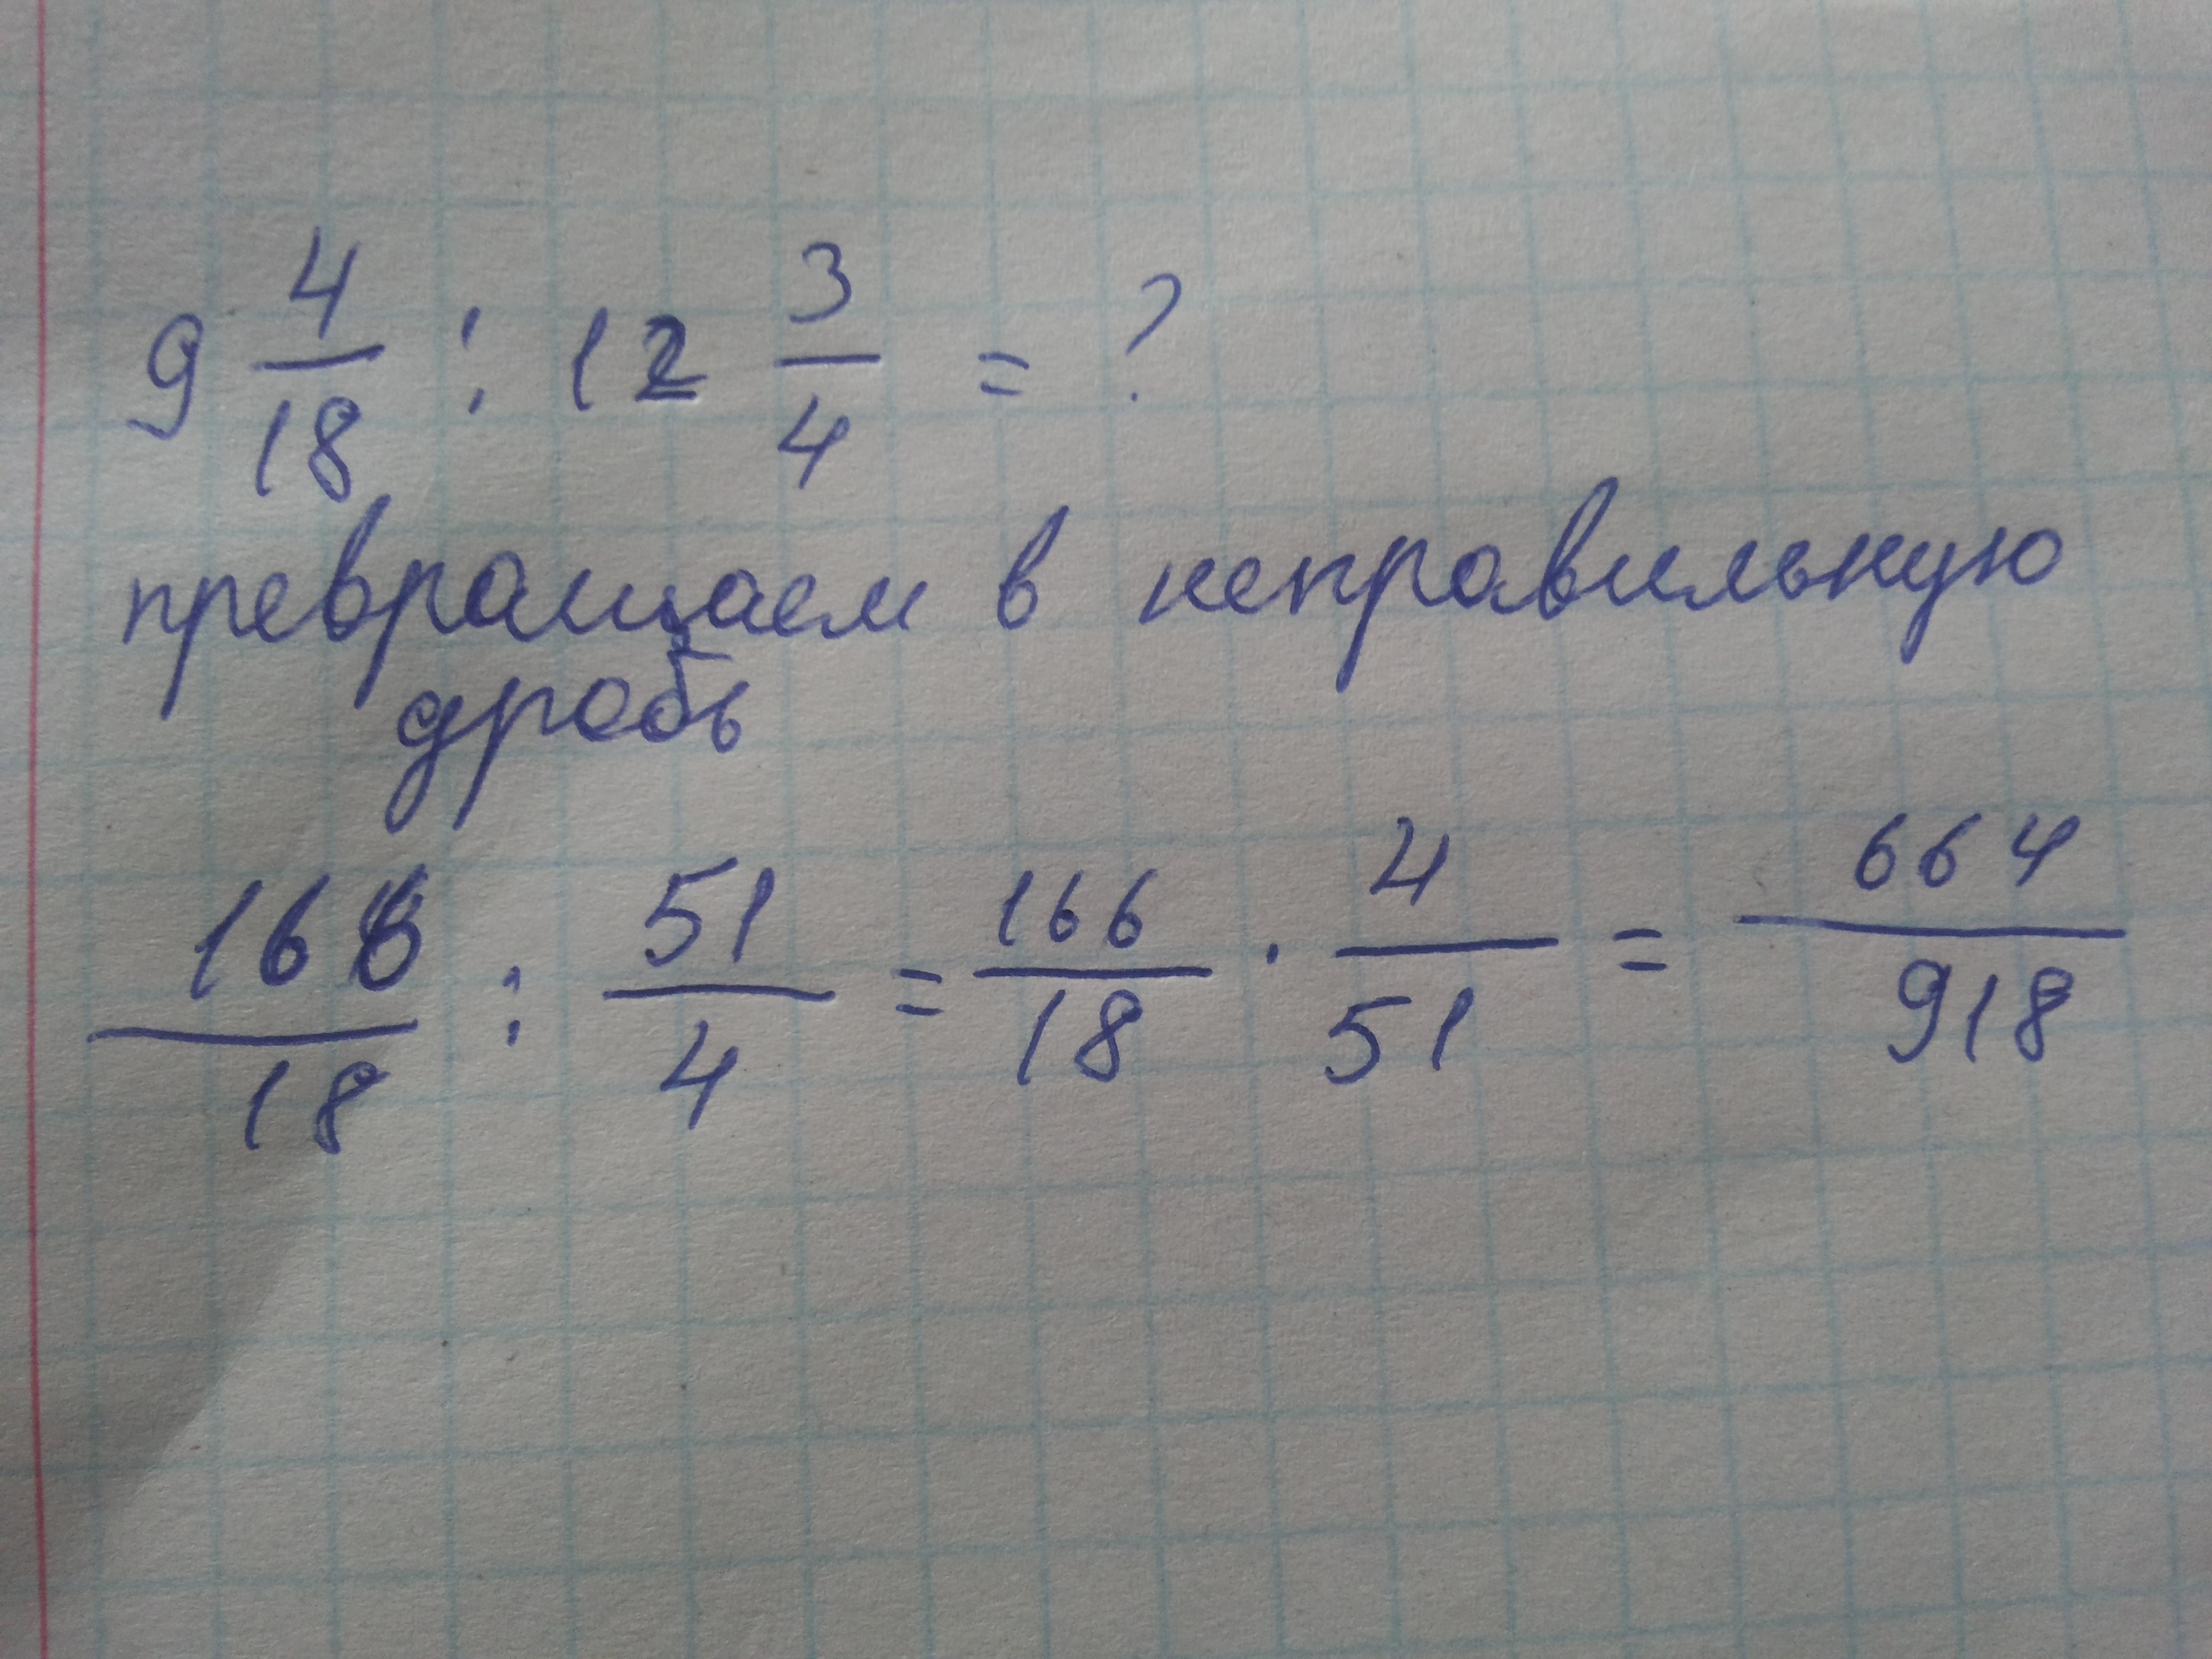 9 4/18 : 12 3/4 = ?
превращаем в неправильную
дробь
166/18 : 51/4 = 166/18 · 4/51 = 664/918